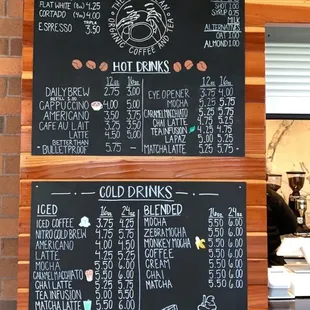 FLAT WHITE 4.25
CORTADO 4.00
ESPRESSO TRIPLE 3.50
ORGANIC COFFEE AND TEA
SHOT 1.00
SYRUP
MILK
ALTERNATIVE
OAT
ALMOND 1.00
HOT DRINKS
12oz 16oz
DAILY BREW 2.75 3.00
CAPPUCCINO
AMERICANO 3.50 3.75
CAFE AU LAIT
LATTE 4.50 5.00
BETTER THAN
BULLETPROOF 5.75 -
12oz 16oz
EYE OPENER 3.75 4.00
MOCHA 5.25 5.75
CARAMEL MACCHIATO 5.25 5.75
CHAI LATTE 4.75 5.25
TEA INFUSION
LAPAZ 5.25
MATCHA LATTE 5.25 5.75
COLD DRINKS
ICED 16oz 24oz
ICED COFFEE 3.75 4.25
NITRO COLD BREW
AMERICANO 4.00 4.50
LATTE 4.25 5.25
MOCHA 5.00 6.00
CARAMEL MACCHIATO
CHAI LATTE
TEA INFUSION
MATCHA LATTE
BLENDED 16oz 24oz
MOCHA 5.50 6.00
ZEBRA MOCHA 5.50 6.00
MONKEY MOCHA 5.50 6.00
COFFEE 5.50 6.00
CREAM 5.50 6.00
CHAI 5.50 6.00
MATCHA 5.50 6.00